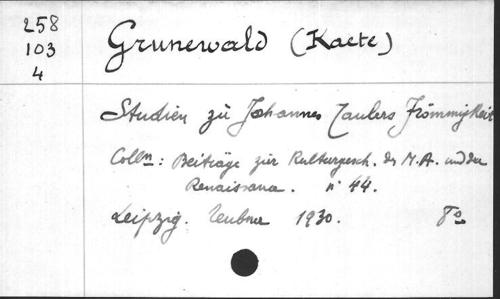 258
103
4
Grunewald (Kaete)
Studien zu Johannes Taulers Frömmigkeit
Colln: Beiträge zur Kulturgesch. des M.A. und der
Renaissance. n° 44.
Leipzig. Teubner 1930. 8°